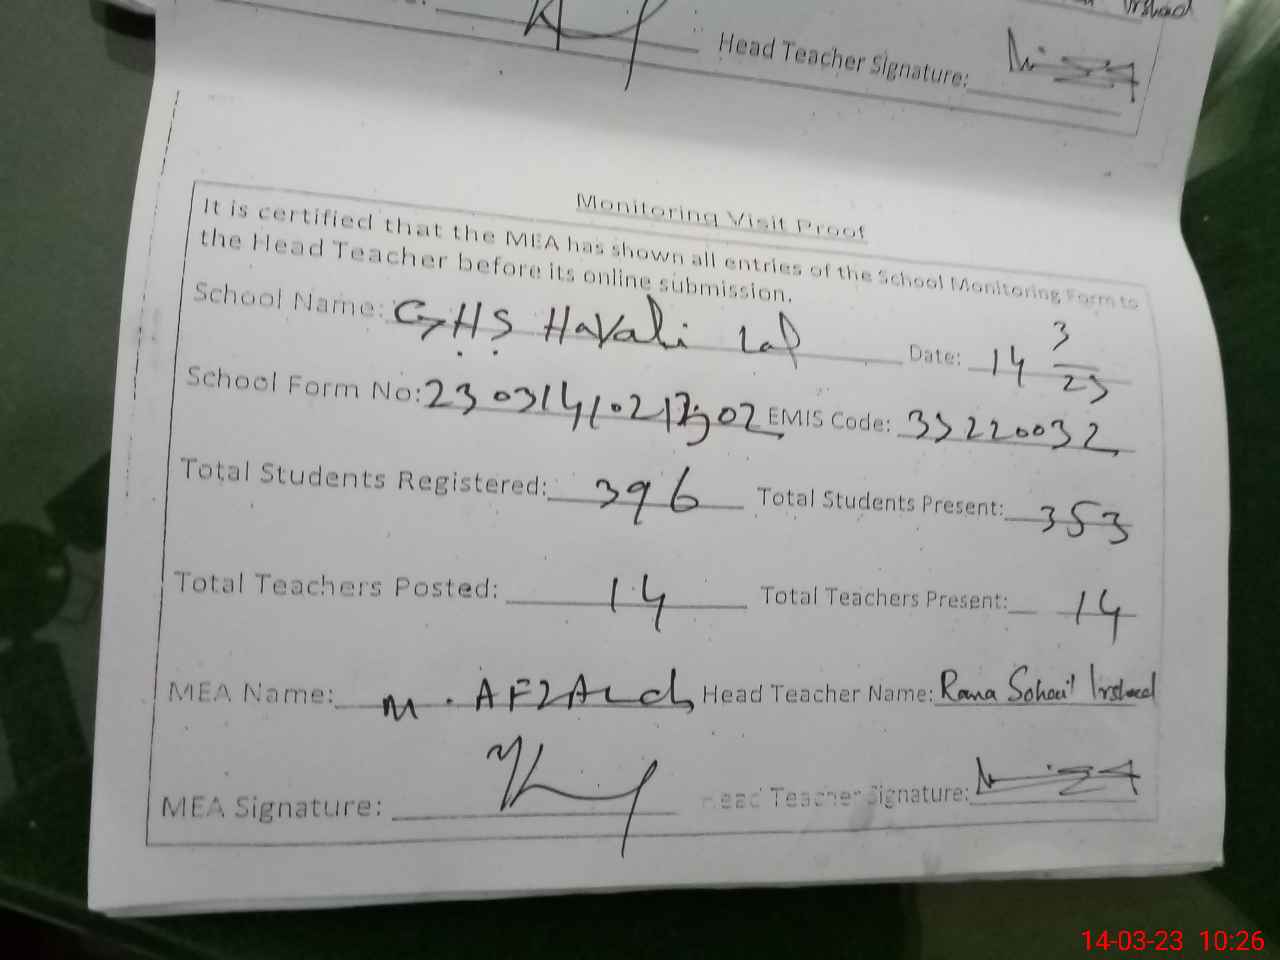 Irshad
Head Teacher Signature:
Monitoring Visit Proof
It is certified that the MEA has shown all entries of the School Monitoring Form to
the Head Teacher before its online submission.
School Name: G.H.S Havali Lal Date: 14 3/23
School Form No: EMIS Code: 33220032
Total Students Registered: 396 Total Students Present: 353
Total Teachers Posted: 14 Total Teachers Present: 14
MEA Name: M. AFZAL Head Teacher Name: Rana Sohail Irshad
MEA Signature: Head Teacher Signature:
14-03-23 10:26